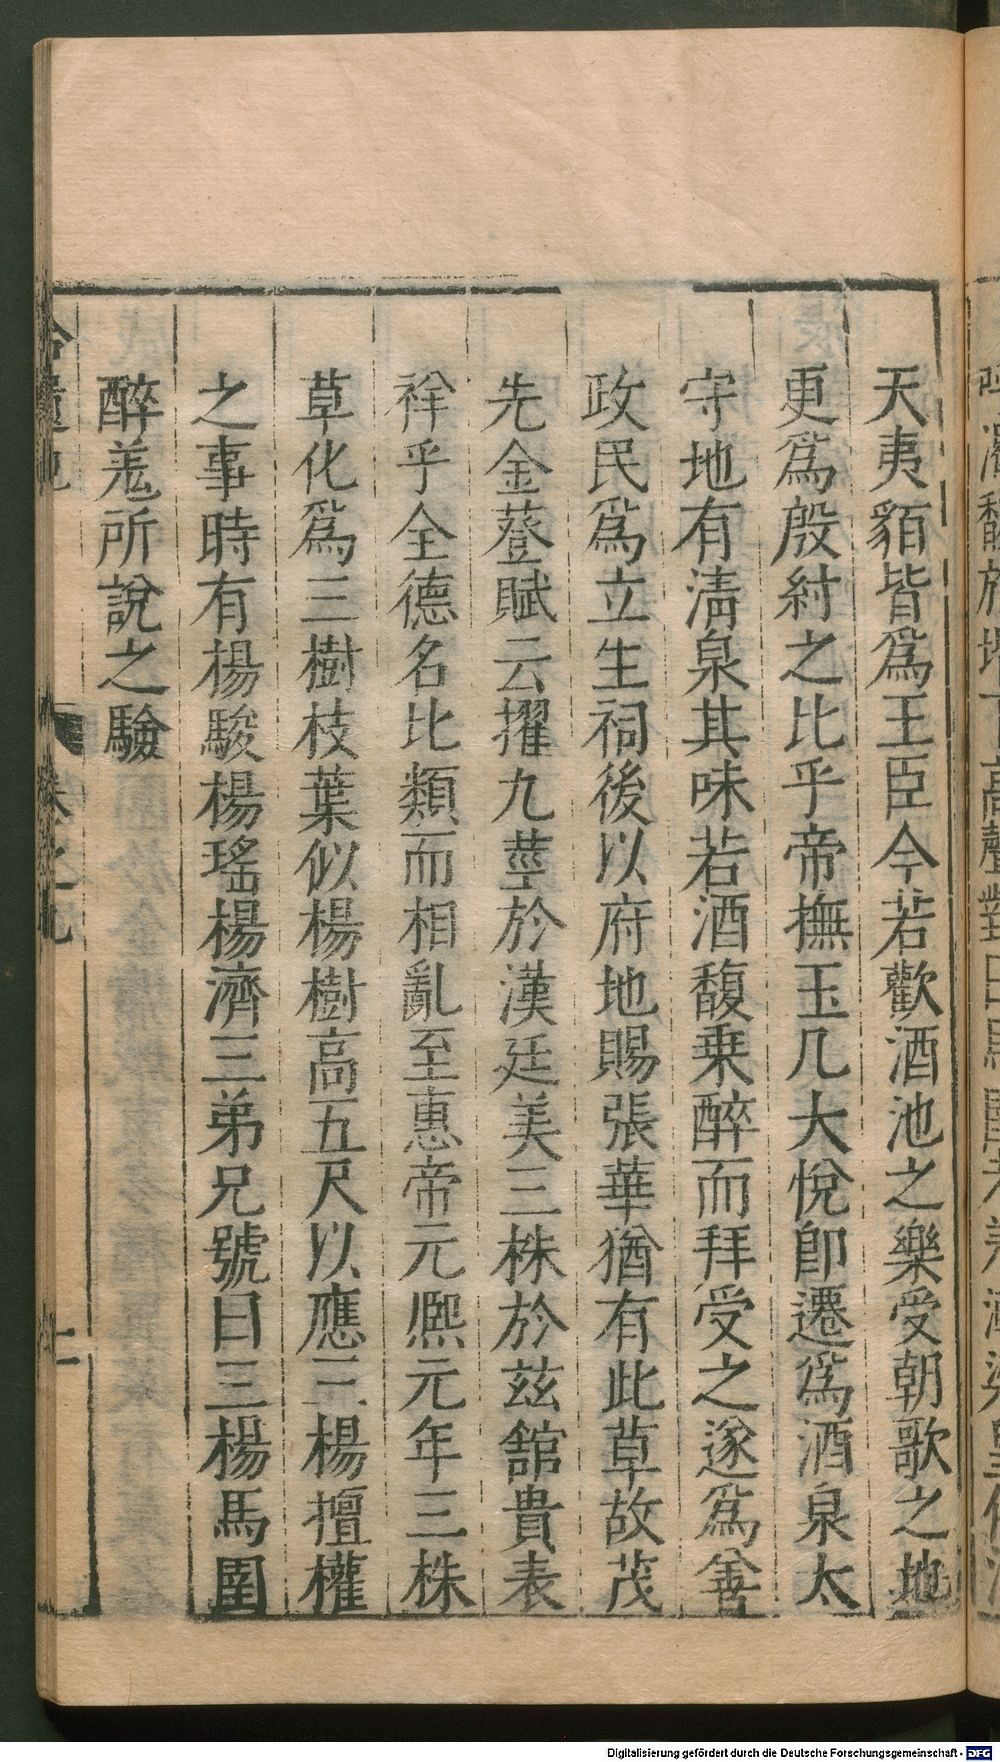 天夷貊皆爲王臣今若歡酒池之樂受朝歌之地
更爲殷紂之比乎帝撫玉几大悅卽遷爲酒泉太
守地有淸泉其味若酒馥乗醉而拜受之遂爲善
政民爲立生祠後以府地賜張華猶有此草故茂
先金䔲賦云擢九莖於漢廷美三株於茲舘貴表
祥乎全德名比類而相亂至惠帝元熈元年三株
草化爲三樹枝葉似楊樹高五尺以應三楊擅權
之事時有楊駿楊瑤楊濟三弟兄號曰三楊馬圉
醉羗所說之驗
卷之九
Digitalisierung gefördert durch die Deutsche Forschungsgemeinschaft - DFG